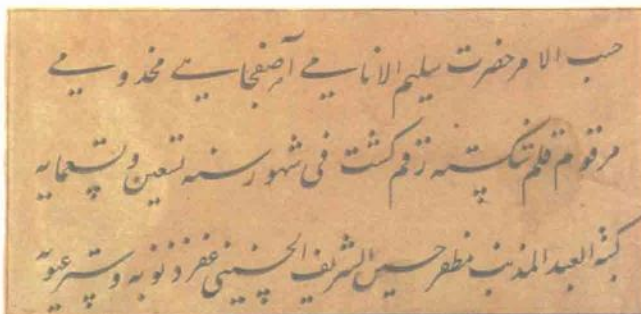 حسب الامر حضرت سلیم الانامی آصفجاهی مخدومی
مرقوم قلم شکسته رقم کشت فی شهور سنه تسعین و تسعمایه
کتبه العبد المذنب مظفر حسین الشریف الحسینی غفر ذنوبه و ستر عیوبه